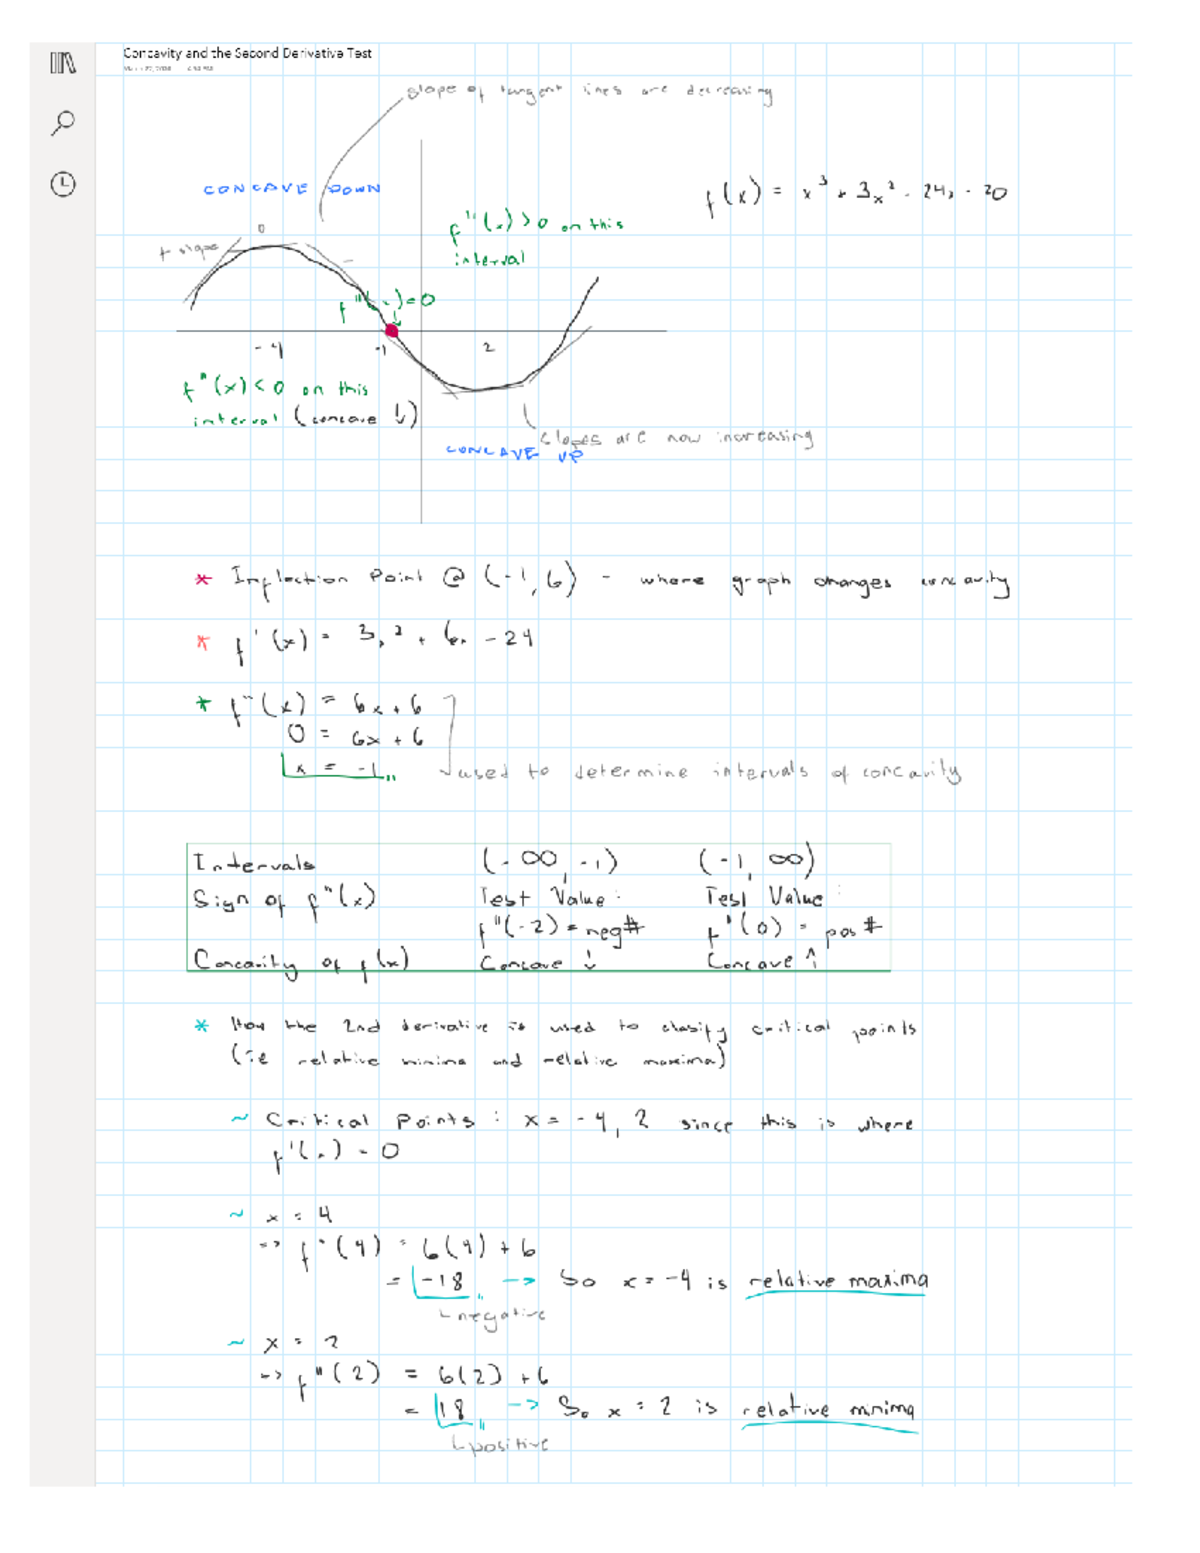 Concavity and the Second Derivative Test
slope of tangent lines are decreasing
CONCAVE DOWN
f(x) = x³ + 3x² - 24x - 20
f''(x) > 0 on this
interval
0
+ slope
-
f''(x) = 0
-4
-1
2
f''(x) < 0 on this
interval (concave ↓)
slopes are now increasing
CONCAVE UP
* Inflection Point @ (-1, 6) - where graph changes concavity
* f'(x) = 3x² + 6x - 24
* f''(x) = 6x + 6
0 = 6x + 6
x = -1
used to determine intervals of concavity
Intervals (-∞, -1) (-1, ∞)
Sign of f''(x) Test Value: Test Value:
f''(-2) = neg# f''(0) = pos#
Concavity of f(x) Concave ↓ Concave ↑
* How the 2nd derivative is used to clasify critical points
(ie relative minima and relative maxima)
~ Critical Points: x = -4, 2 since this is where
f'(x) = 0
~ x = 4
-> f''(4) = 6(4) + 6
= -18 -> So x = -4 is relative maxima
negative
~ x = 2
-> f''(2) = 6(2) + 6
= 18 -> So x = 2 is relative minima
positive